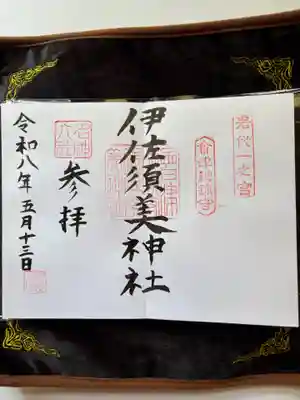 岩代一之宮
伊佐須美神社
参拝
名神大社
令和八年五月十三日